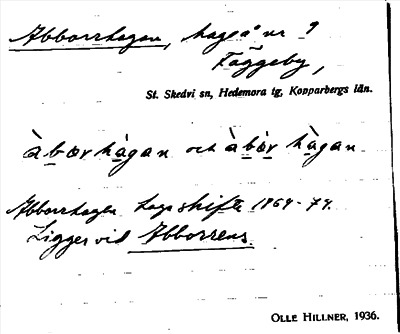 Abborrhagen, hage å nr 9
Fäggeby,
St. Skedvi sn, Hedemora tg, Kopparbergs län.
àbærhàgan och àbèr hàgan.
Abborrhagen Laga skifte 1864-74.
Ligger vid Abborrens
OLLE HILLNER, 1936.